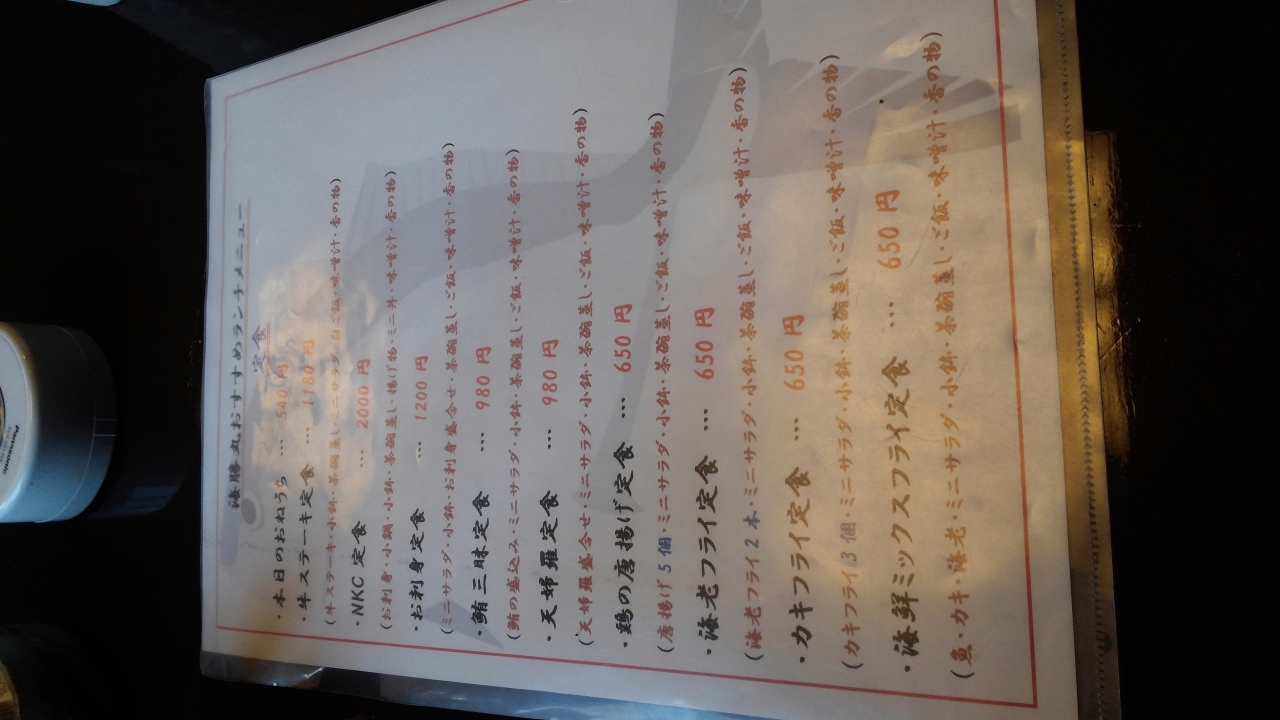 海勝丸おすすめランチメニュー
定食
・本日のおねうち … 540円
・牛ステーキ定食 … 1180円
(牛ステーキ・小鉢・茶碗蒸し・ミニサラダ・白ご飯・味噌汁・香の物)
・NKC定食 … 2000円
(お刺身・小鍋・小鉢・茶碗蒸し・揚げ物・ミニ丼・味噌汁・香の物)
・お刺身定食 … 1200円
(ミニサラダ・小鉢・お刺身盛合せ・茶碗蒸し・ご飯・味噌汁・香の物)
・鮪三昧定食 … 980円
(鮪の盛込み・ミニサラダ・小鉢・茶碗蒸し・ご飯・味噌汁・香の物)
・天婦羅定食 … 980円
(天婦羅盛合せ・ミニサラダ・小鉢・茶碗蒸し・ご飯・味噌汁・香の物)
・鶏の唐揚げ定食 … 650円
(唐揚げ5個・ミニサラダ・小鉢・茶碗蒸し・ご飯・味噌汁・香の物)
・海老フライ定食 … 650円
(海老フライ2本・ミニサラダ・小鉢・茶碗蒸し・ご飯・味噌汁・香の物)
・カキフライ定食 … 650円
(カキフライ3個・ミニサラダ・小鉢・茶碗蒸し・ご飯・味噌汁・香の物)
・海鮮ミックスフライ定食 … 650円
(魚・カキ・海老・ミニサラダ・小鉢・茶碗蒸し・ご飯・味噌汁・香の物)
Panasonic